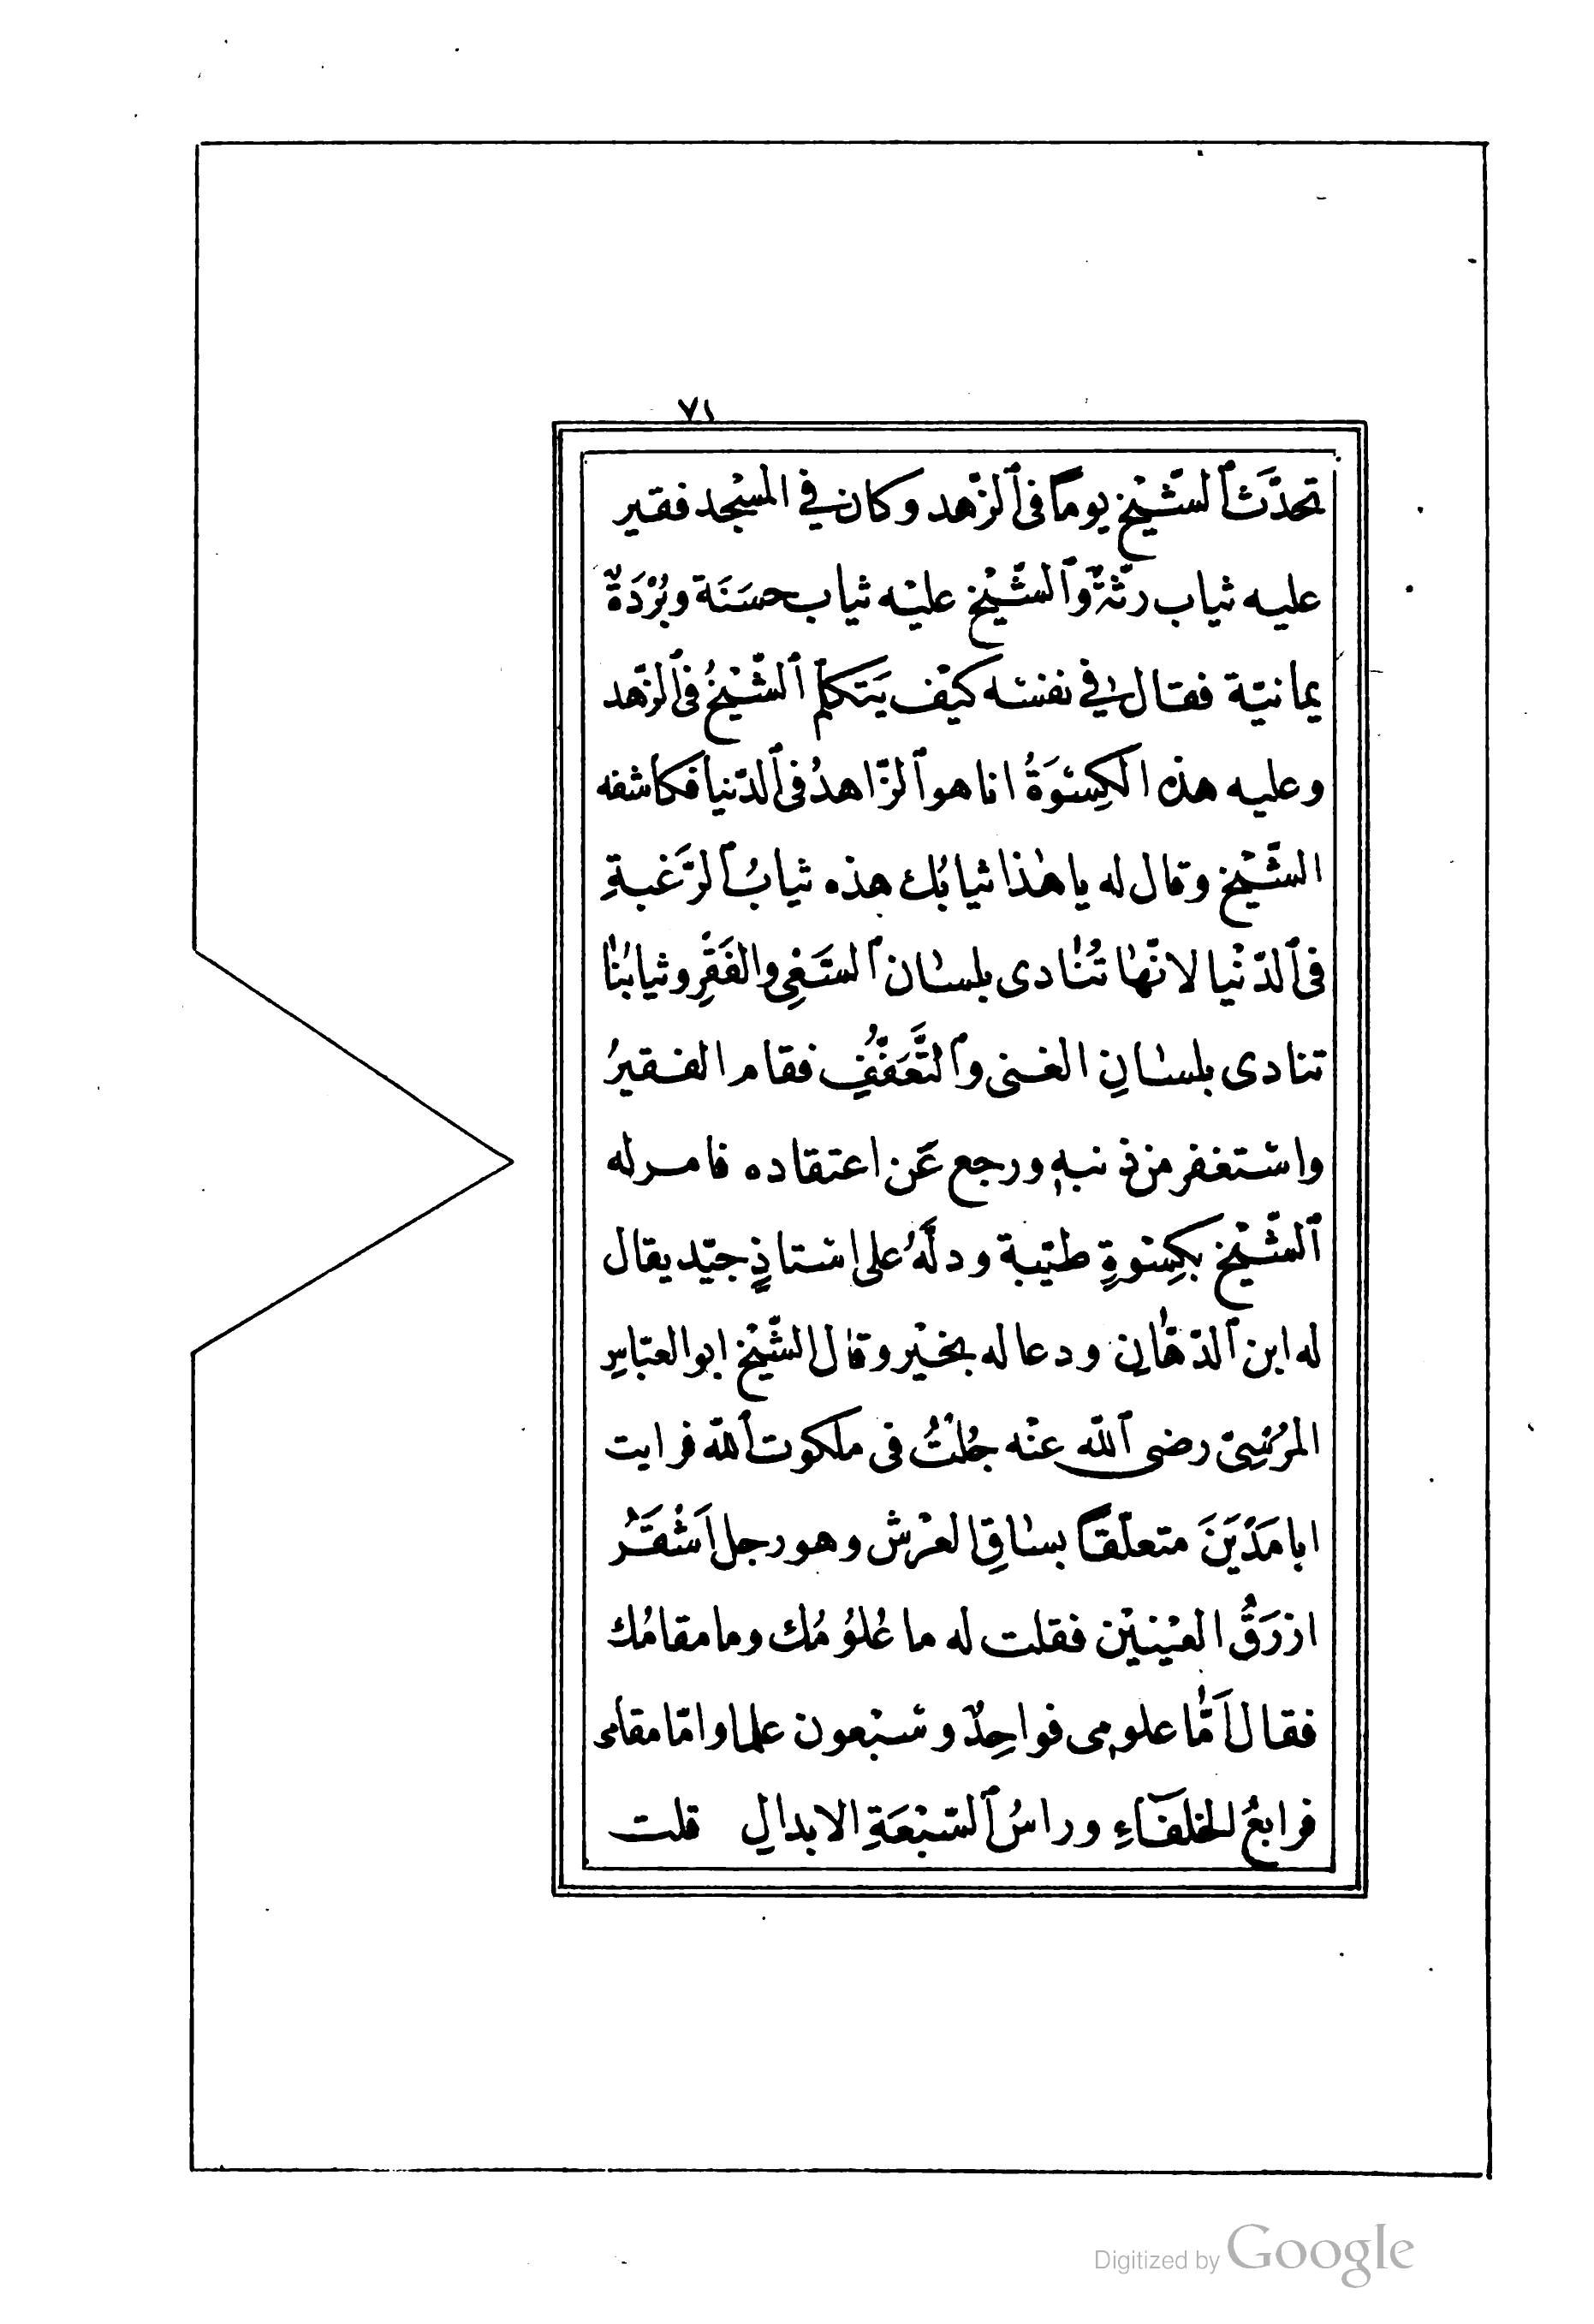 ٧١
تحدَّثَ ٱلشَّيْخ يومًا فى ٱلزّهد وكان في المسْجد فقير
عليه ثياب رثّةٌ وٱلشَّيْخ عليْه ثياب حسَنَة وبُرْدَةٌ
يمانيّة فقال في نفسْه كيْف يَتكلم ٱلشَّيْخُ فى ٱلزّهد
وعليه هذه الكِسْوَةُ انا هو ٱلزّاهدُ فى ٱلدّنيا فكاشفه
الشَّيْخ وقال له يا هٰذا ثيابُك هذه ثيابُ ٱلرّغبةِ
فى ٱلدّنْيا لانّهٰا تُنٰادى بلسٰان ٱلسَّغِي والفَقْرِ وثيابُنٰا
تنادى بلسٰانِ الغنى وٱلتَّعَفُّفِ فقام الفقيرُ
واسْتغفر من ذنبهٖ ورجع عَن اعتقاده فامر له
ٱلشَّيْخ بكِسْوةٍ طيّبة ودلَّهُ على اسْتاذٍ جيّد يقال
له ابن ٱلدّهّٰان ودعا له بخيْر وقال الشَّيْخ ابو العبّاسِ
المرْسِىّ رضى ٱللّه عنْه جُلْتُ فى ملكوت ٱللّه فرايت
ابا مَدْيَنَ متعلّقًا بسٰاقِ العرْش وهو رجل اَشْقَرُ
ازرَقُ العيْنيْن فقلت له ما عُلوُمُك وما مقامُك
فقال اَمّٰا علومى فواحِدٌ وسَبْعون علما وامّا مقامى
فرابعُ الخلفَآءِ وراسُ ٱلسّبْعَةِ الابدالِ قلت
Digitized by Google